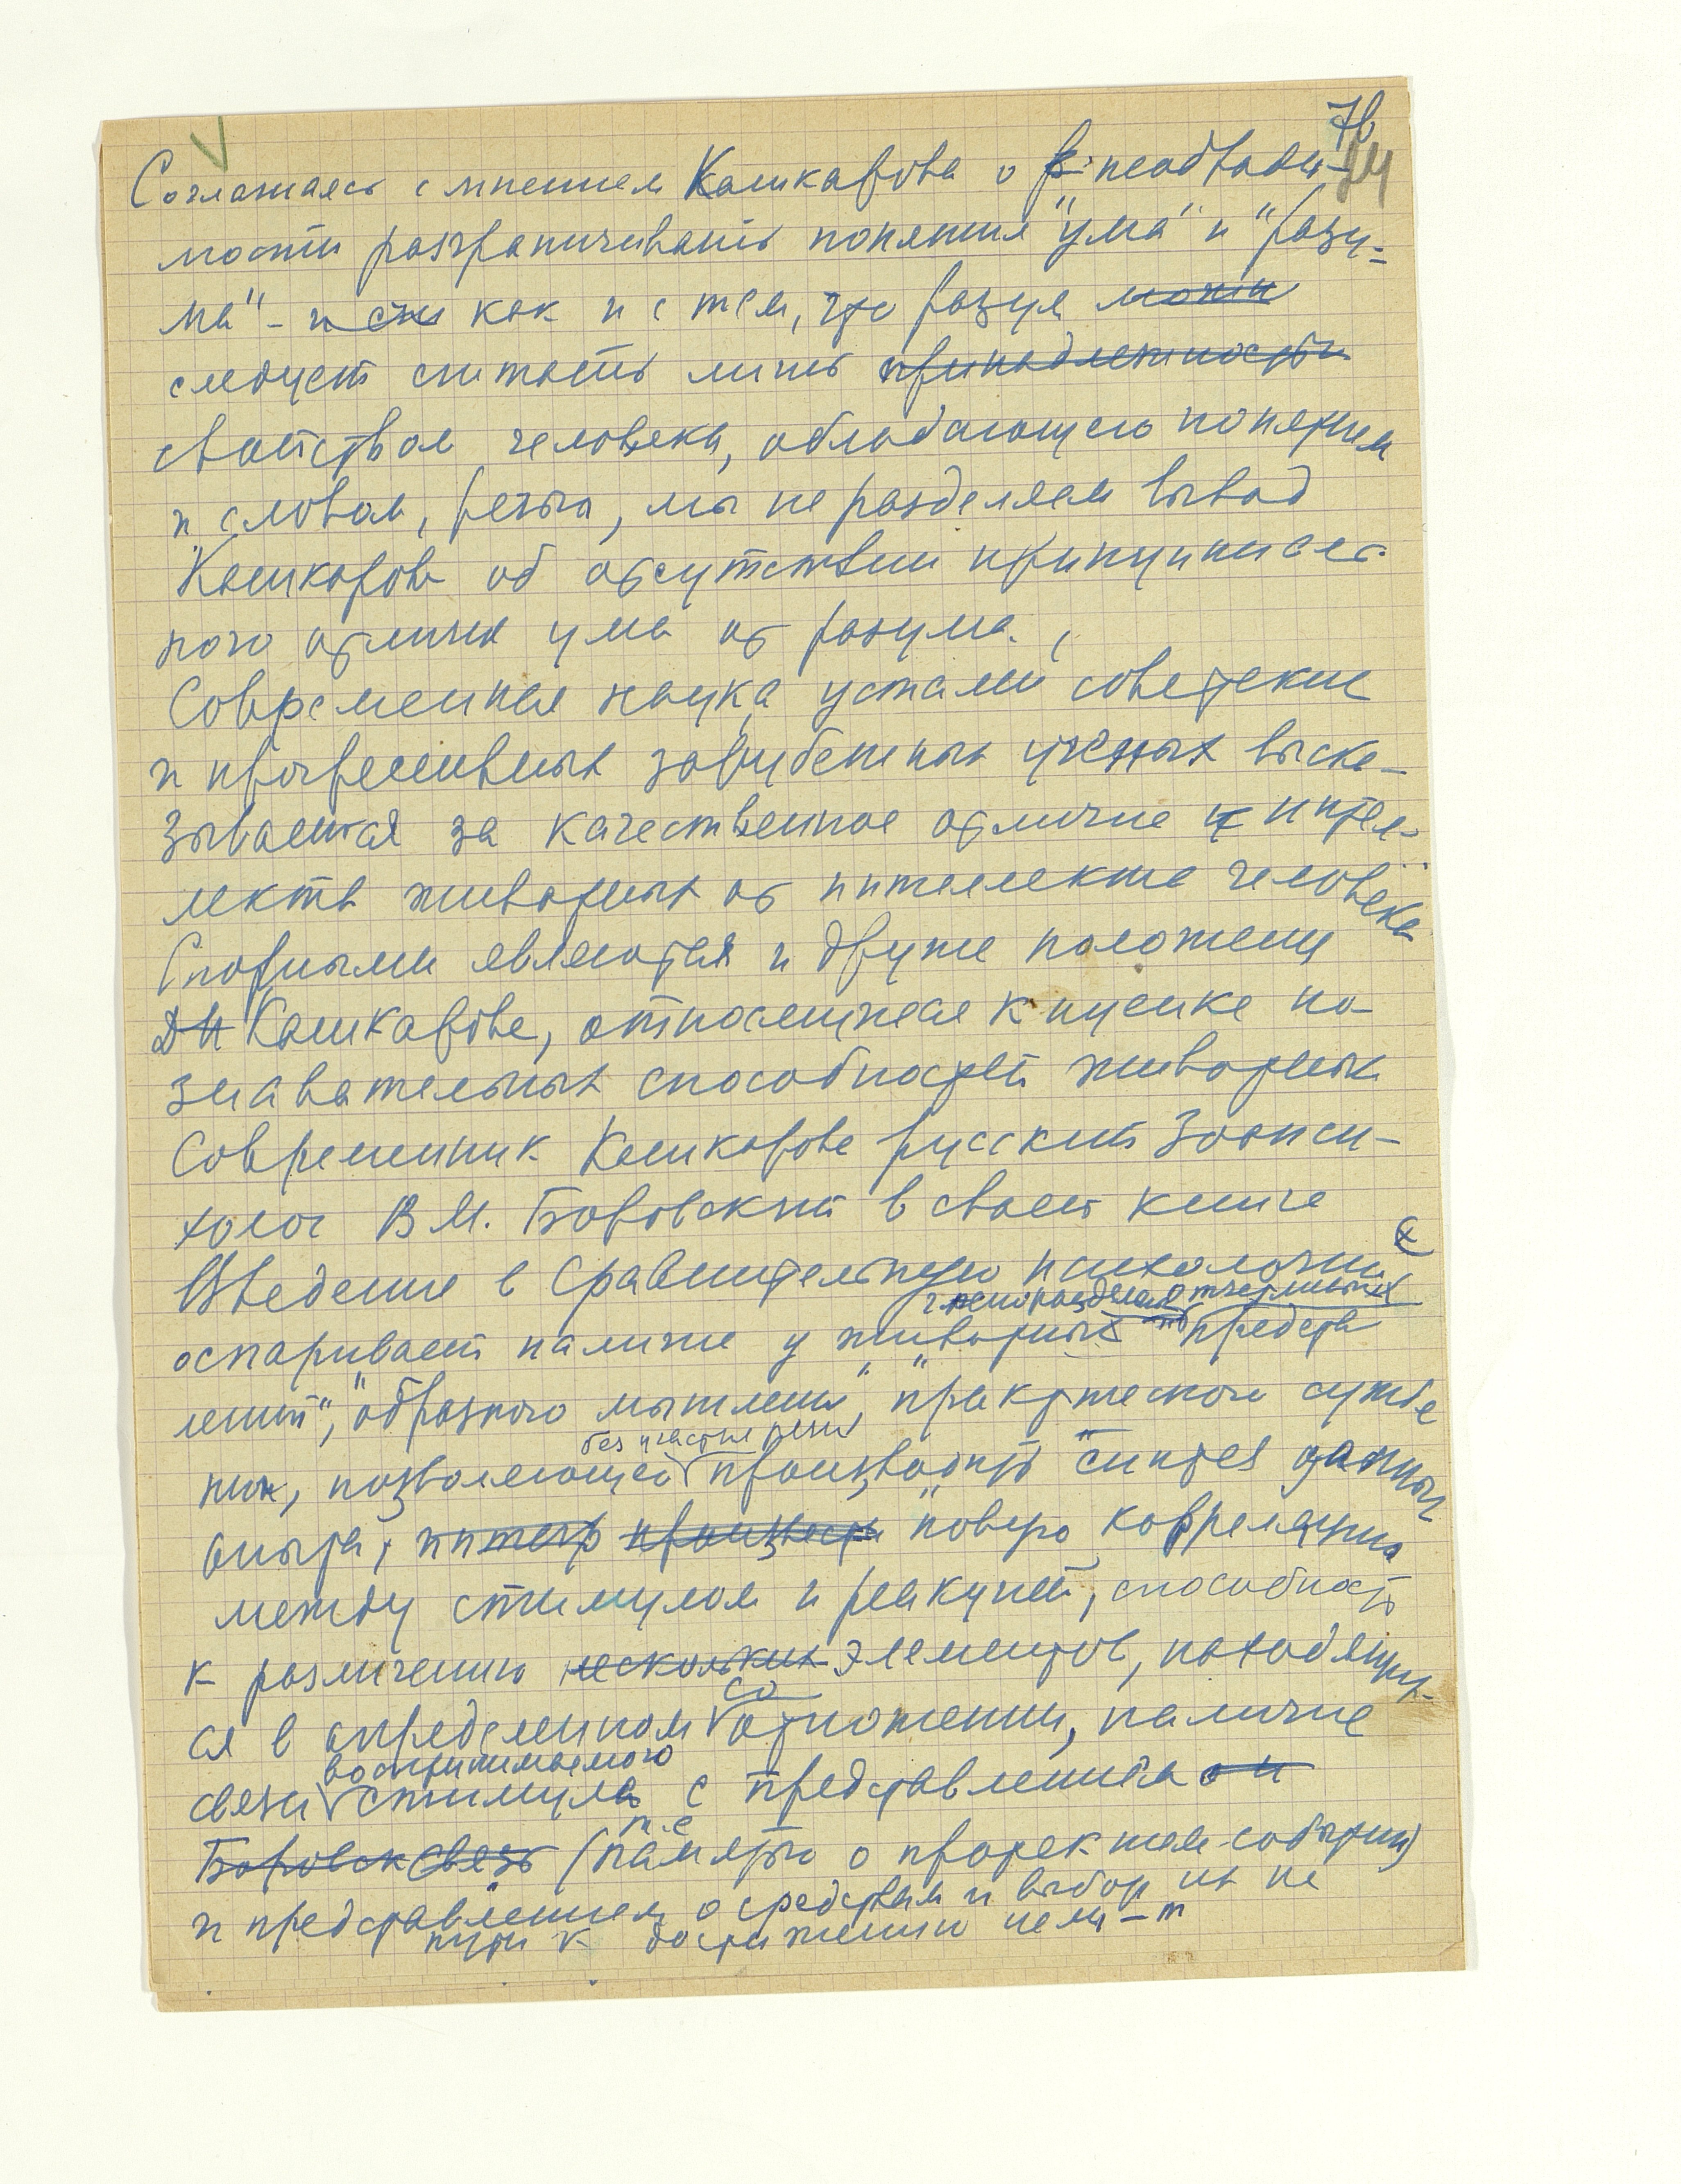 76
24
Соглашаясь с мнением Кашкарова о необходи-
мости разграничивать понятия "ума" и "разу-
ма" - как и с тем, что разум можно
следует считать лишь принадлежностью
свойством человека, обладающего понятием
и словом, речью, мы не разделяем вывод
Кашкарова об отсутствии принципиаль-
ного отличия ума от разума.
Современная наука устами советских
и прогрессивных зарубежных учёных выска-
зывается за качественное отличие интел-
лекта животных от интеллекта человека
Спорными являются и другие положения
ДН Кашкарова, относящиеся к оценке по-
знавательных способностей животных
Современник Кашкарова русский зоопси-
холог В М. Боровский в своей книге
Введение в сравнительную психологию
оспаривает наличие у животных представ
лений", "образного мышления", "практического сужде
ния, позволяющего без участия речи производить "синтез данных
опыта, произвести "новую корреляцию
между стимулом и реакцией, способность
к различению нескольких элементов, находящих-
ся в определенном соотношении, наличие
связи воспринимаемого стимула с представлением
Боровск связь (т.е памятью о протекшем событии)
и представлением о средствах и выбор их не
пути к достижению цели - т